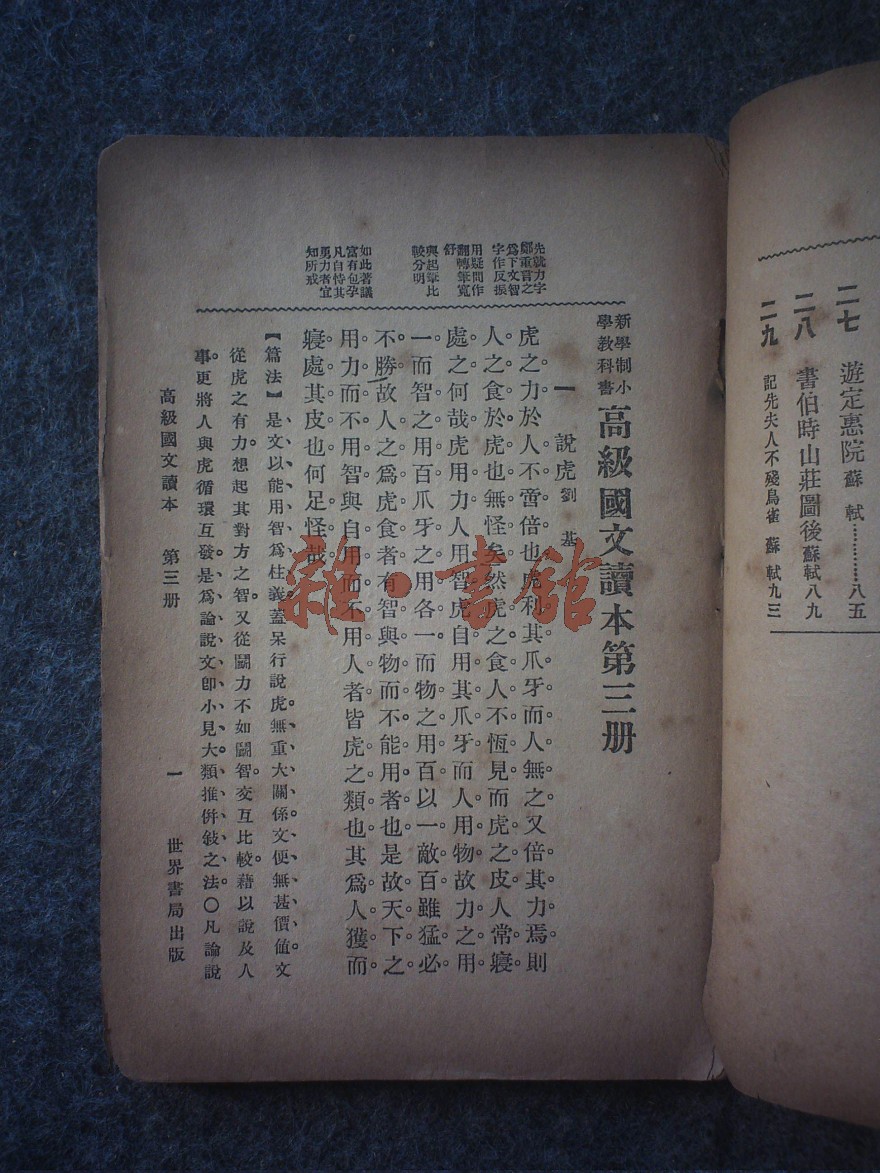 二七 遊定惠院 蘇軾…………八五
二八 書伯時山莊圖後 蘇軾 八九
二九 記先夫人不殘鳥雀 蘇軾 九三
新學制小
學教科書
高級國文讀本第三册
一 說虎 劉基
虎之力於人不啻倍也虎利其爪牙而人無之又倍其力焉則
人之食於虎也無怪矣然虎之食人不恆見而虎之皮人常寢
處之何哉虎用力人用智虎自用其爪牙而人用物故力之用
一而智之用百爪牙之用各一而物之用百以一敵百雖猛必
不勝故人之爲虎食者有智與物而不能用者也是故天下之
用力而不用智與自用而不用人者皆虎之類也其爲人獲而
寢處其皮也何足怪哉
先就力字
鄭重言之
爲下文智
字作反振
用疑問作
翻轉筆寬
舒
與起筆比
較分明
如此著議
富有包孕
凡自恃其
勇力者宜
知所戒
【篇法】是文以能用智爲柱義蓋呆行說虎無重大關係文便無甚價值文
從虎之有力。想起其對方之智。又從鬭力不如鬭智。交互比較。藉以說及人
事。更將人與虎循環互發。是爲論說文卽小見大、類推併敍之法。〇凡論說
高級國文讀本 第三册 一 世界書局出版
雜·書館